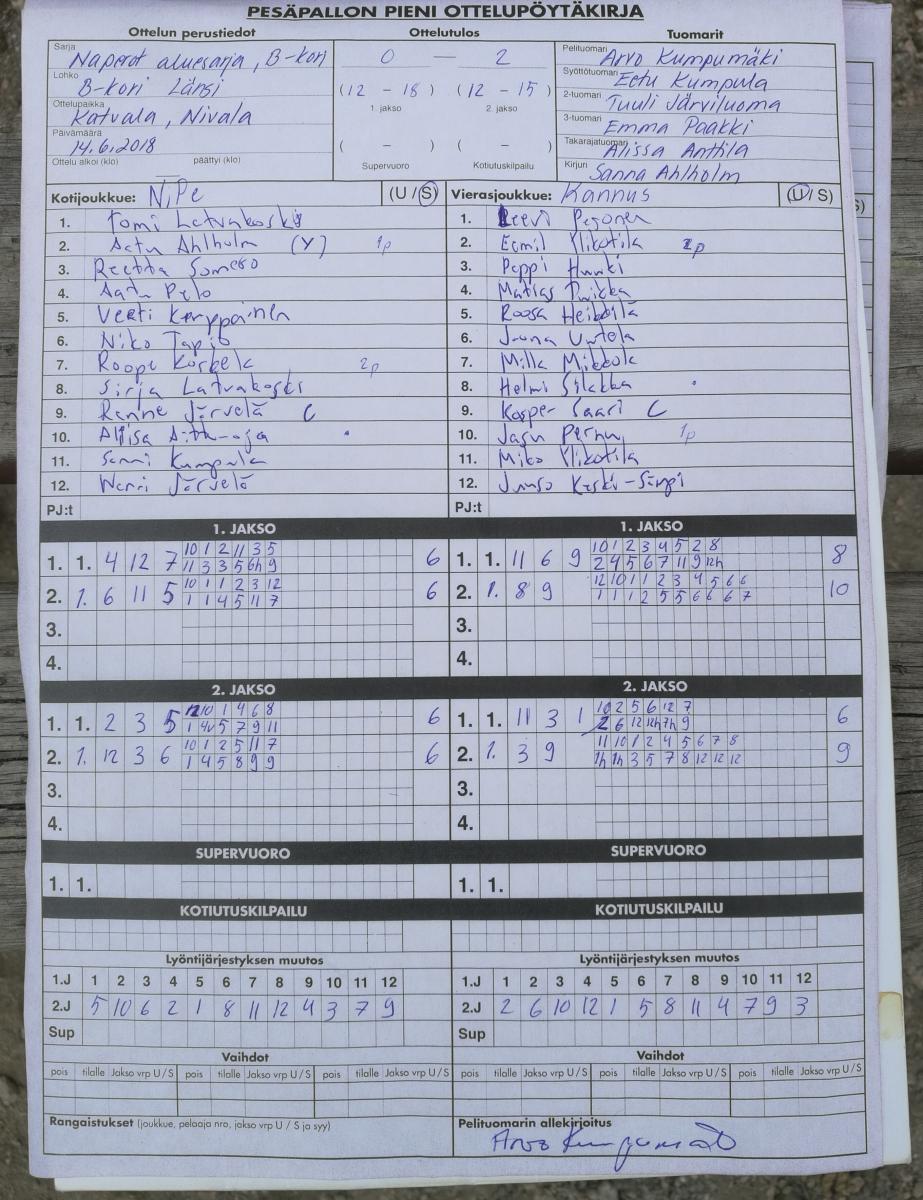 PESÄPALLON PIENI OTTELUPÖYTÄKIRJA
Ottelun perustiedot
Ottelutulos
Tuomarit
Sarja Naperot aluesarja, B-kori
Lohko B-kori Länsi
Ottelupaikka Katvala, Nivala
Päivämäärä 14.6.2018
Ottelu alkoi (klo) päättyi (klo)
0 — 2
(12 - 18) (12 - 15)
1. jakso 2. jakso
( - ) ( - )
Supervuoro Kotiutuskilpailu
Pelituomari Arvo Kumpumäki
Syöttötuomari Eetu Kumpula
2-tuomari Tuuli Järviluoma
3-tuomari Emma Paakki
Takarajatuomari Alissa Anttila
Kirjuri Sanna Ahlholm
Kotijoukkue: NiPe (U / S)
1. Tomi Latvakoski
2. Aatu Ahlholm (Y) 1p
3. Reetta Somero
4. Aatu Pelo
5. Veeti Karppainen
6. Niko Tapio
7. Roope Korkela 2p
8. Sirja Latvakoski
9. Ranne Järvelä C
10.
11. Sanni Kumpula
12. Wenni Järvelä
PJ:t
Vierasjoukkue: Kannus (U / S)
1. Leevi Pesonen
2. Eemil Ylikotila 2p
3. Peppi Hunki
4. Matias
5. Roosa Heikkilä
6. Joona Untela
7. Milla Mikkola
8. Helmi Silakka
9. Kasper Saari C
10. Jasu Pernu 1p
11. Miko Ylikotila
12. Juuso Keski-Särpi
PJ:t
1. JAKSO
1. 1. 4 12 7 10 1 2 11 3 5 6
11 3 3 5 6h 9
2. 1. 6 11 5 10 1 1 2 3 12 6
1 1 4 5 11 7
3.
4.
1. JAKSO
1. 1. 11 6 9 10 1 2 3 4 5 2 8 8
2 4 5 6 7 11 9 12h
2. 1. 8 9 12 10 1 1 2 3 4 5 6 6 10
1 1 1 2 5 5 6 6 6 7
3.
4.
2. JAKSO
1. 1. 2 3 5 12 10 1 4 6 8 6
1 4h 5 7 9 11
2. 1. 12 3 6 10 1 2 5 11 7 6
1 4 5 8 9 9
3.
4.
2. JAKSO
1. 1. 11 3 1 10 2 5 6 12 7 6
2 6 12 12h 7h 9
2. 1. 3 9 11 10 1 2 4 5 6 7 8 9
1h 1h 3 5 7 8 12 12 12
3.
4.
SUPERVUORO
1. 1.
SUPERVUORO
1. 1.
KOTIUTUSKILPAILU
KOTIUTUSKILPAILU
Lyöntijärjestyksen muutos
1.J 1 2 3 4 5 6 7 8 9 10 11 12
2.J 5 10 6 2 1 8 11 12 4 3 7 9
Sup
Lyöntijärjestyksen muutos
1.J 1 2 3 4 5 6 7 8 9 10 11 12
2.J 2 6 10 12 1 5 8 11 4 7 9 3
Sup
Vaihdot
pois tilalle Jakso vrp U / S pois tilalle Jakso vrp U / S pois tilalle Jakso vrp U / S
Vaihdot
pois tilalle Jakso vrp U / S pois tilalle Jakso vrp U / S pois tilalle Jakso vrp U / S
Rangaistukset (joukkue, pelaaja nro, jakso vrp U / S ja syy)
Pelituomarin allekirjoitus
Arvo Kumpumäki